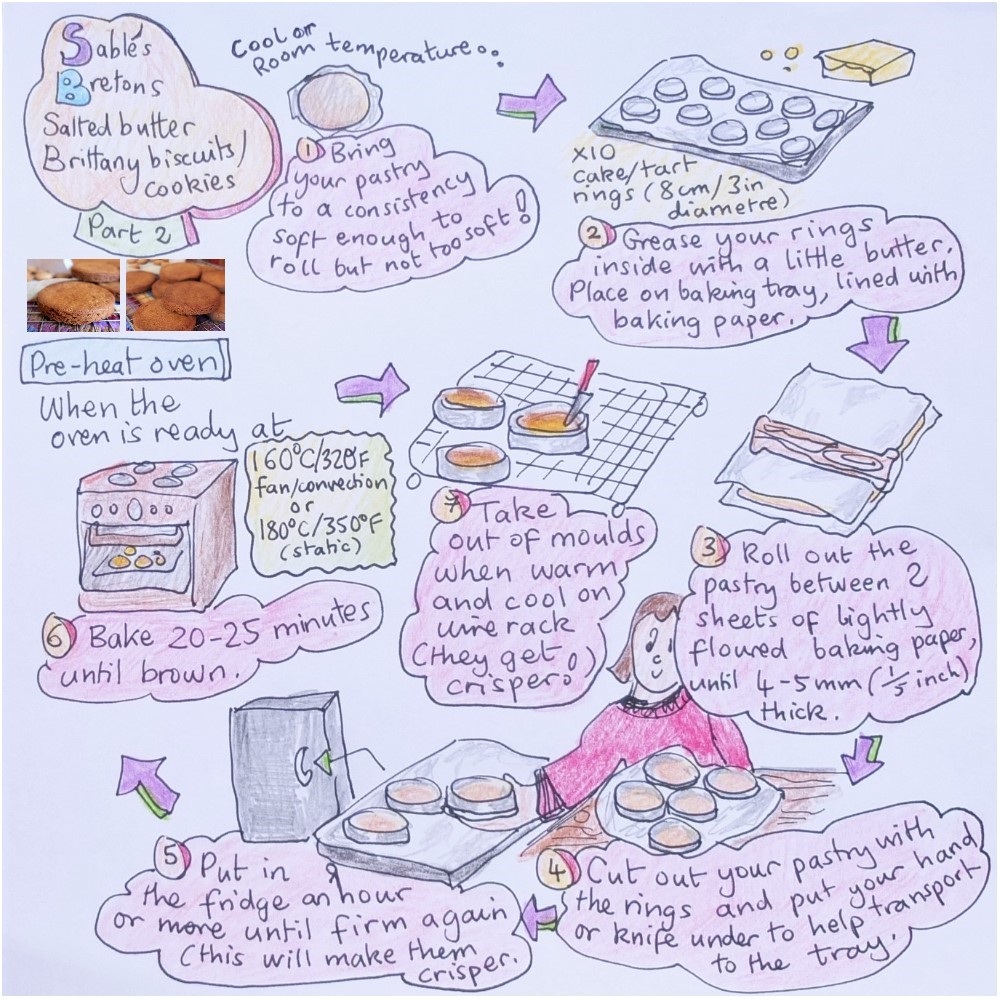 Sablés
Bretons
Salted butter
Brittany biscuits/
cookies
Part 2
Cool or
Room temperature..
1 Bring
your pastry
to a consistency
soft enough to
roll but not too soft!
x10
cake/tart
rings (8cm/3in
diametre)
2 Grease your rings
inside with a little butter.
Place on baking tray, lined with
baking paper.
3 Roll out the
pastry between 2
sheets of lightly
floured baking paper,
until 4-5mm (1/5 inch)
thick.
4 Cut out your pastry with
the rings and put your hand
or knife under to help transport
to the tray.
5 Put in
the fridge an hour
or more until firm again
(this will make them
crisper.
Pre-heat oven
When the
oven is ready at
160°C/320°F
fan/convection
or
180°C/350°F
(static)
6 Bake 20-25 minutes
until brown.
7 Take
out of moulds
when warm
and cool on
wire rack
(they get
crisper!)